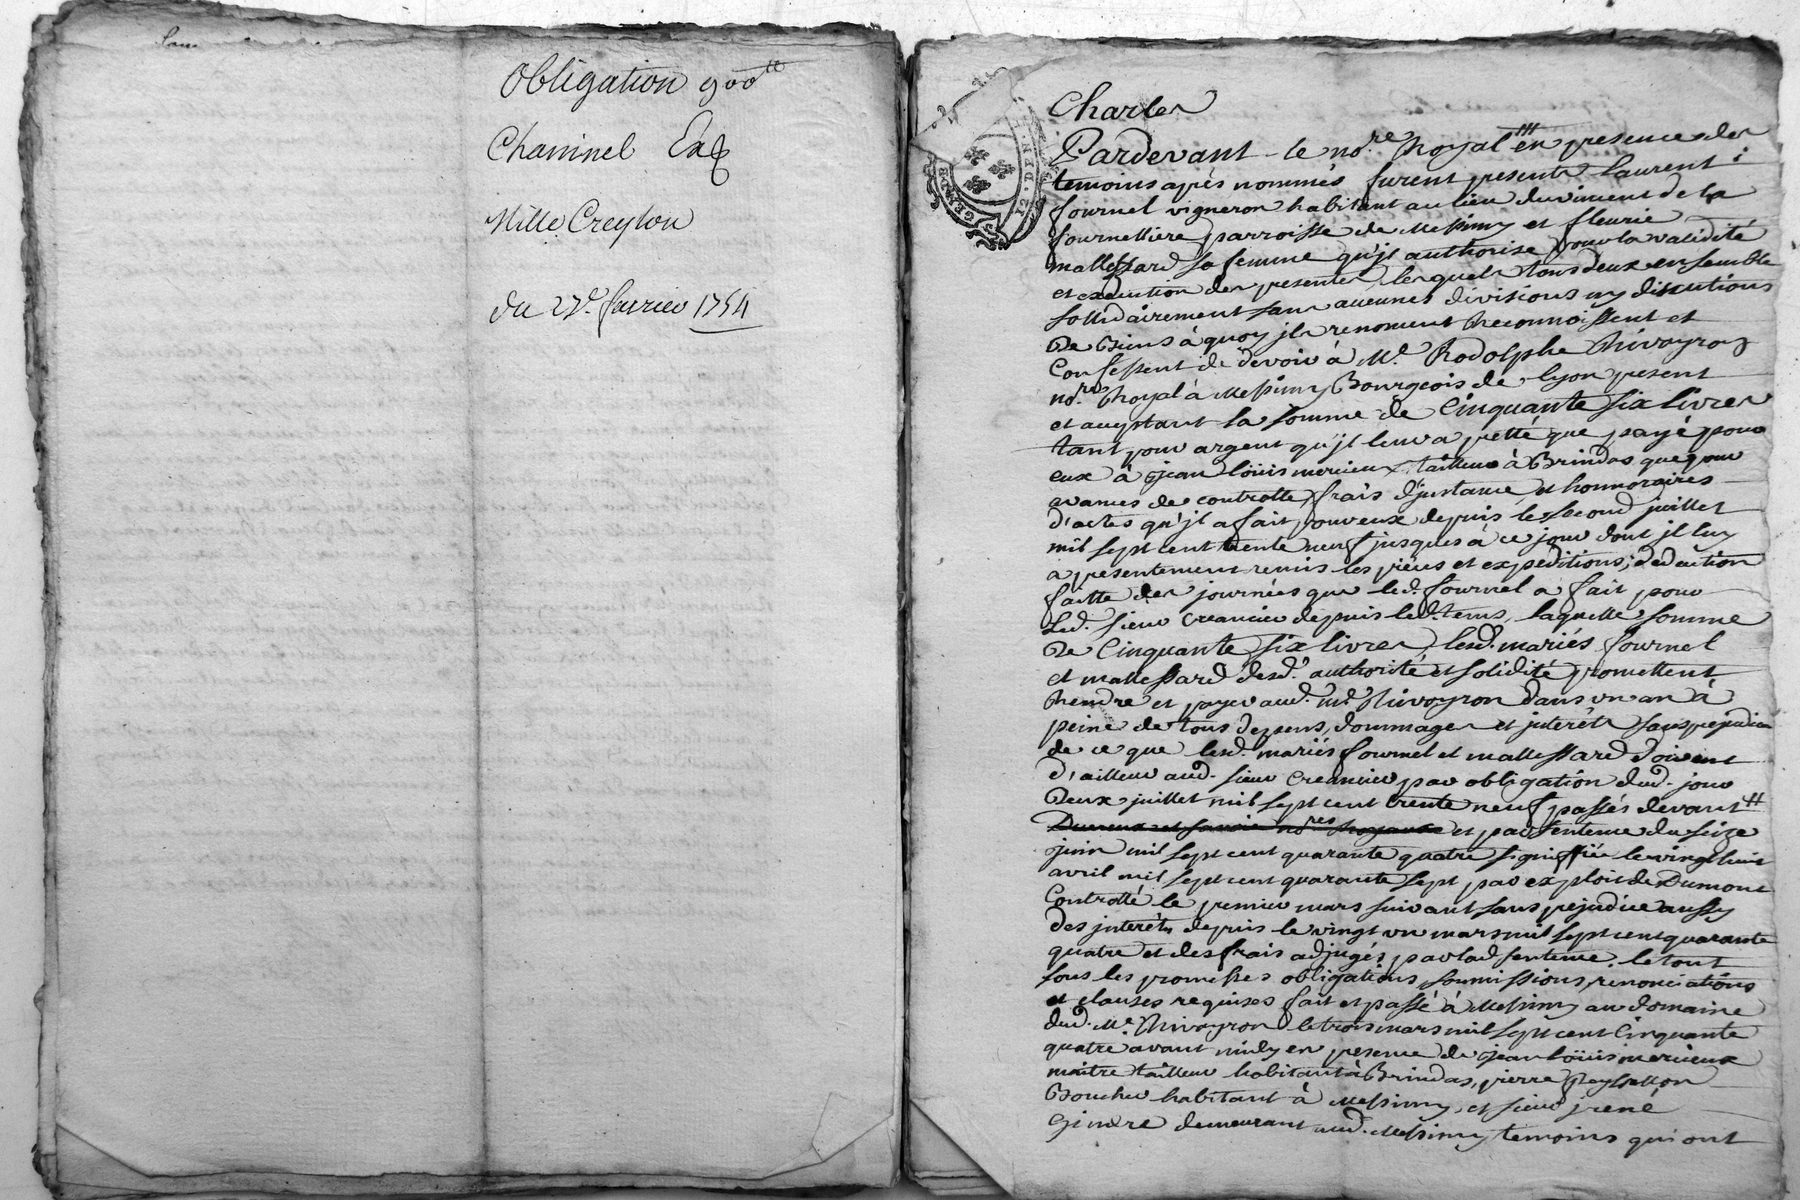 Obligation 900 tt
Chaninel
Nille Creyton
du 27e. fevrier 1754
GEN. DE
12. DEN.
Charles
Pardevant le no.re Royal en presence des
temoins après nommés furent presents Laurent
fournel vigneron habitant au lieu du viment de la
fournelliere parroisse de Messimy et fleurie
mallessard sa femme qu'jl authorise pour la validité
et exécution des presentes, lesquels tous deux ensemble
sollidairement sans aucunes divisions ny discutions
de biens à quoy jls renoncent Reconnoissent et
Confessent de devoir à Me. Rodolphe Thivoyron
no.re Royal à Messimy Bourgeois de Lyon present
et acceptant la somme de Cinquante six livres
tant pour argent qu'jl leur a pretté que payé pour
eux à jean Loüis mercieux tailleur à Brindas que pour
avances de controlle, frais d'jnstance et honnoraires
d'actes qu'jl a fait pour eux depuis le second juillet
mil sept cent trente neuf jusques à ce jour dont jl leur
a presentement remis les pieces et expeditions; deduction
faitte des journées que led. fournel a fait pour
Led. sieur creancier depuis led. tems, laquelle somme
de Cinquante six livres, lesd. mariés fournel
et mallessard desd. authorité et solidité promettent
rendre et payer aud. Me Thivoyron dans un an à
peine de tous depens, dommages et jnterêts sans prejudice
de ce que lesd. mariés fournel et mallessard doivent
d'ailleur aud. sieur Creancier par obligation dud. jour
deux juillet mil sept cent trente neuf passés devant
et par sentence du seize
juin mil sept cent quarante quatre signiffiée le vingt huit
avril mil sept cent quarante sept par exploit de Dumont
Controllé le premier mars suivant sans prejudice aussy
des jnterêts depuis le vingt un mars mil sept cent quarante
quatre et des frais adjugés par lad. sentence. le tout
sous les promesses obligations, soumissions, renonciations
et clauses requises fait et passé à Messimy au domaine
dud. Me. Thivoyron le trois mars mil sept cent Cinquante
quatre avant midy en presence de jean Loüis mercieux
maitre tailleur habitant à Brindas, pierre
Boucher habitant à Messimy, et sieur jrené
Gindre demeurant aud. Messimy temoins qui ont